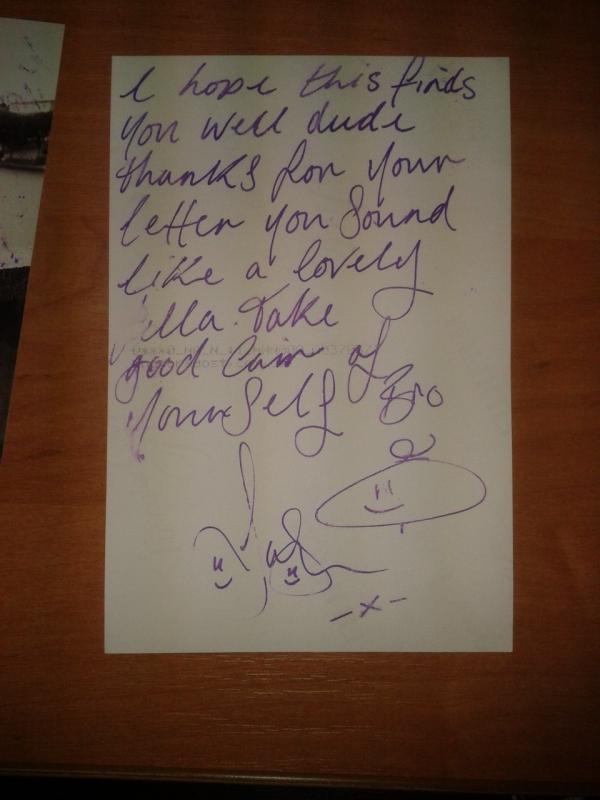 I hope this finds
you well dude
thanks for your
letter you sound
like a lovely
ella take
good care of
yourself Bro
-x-